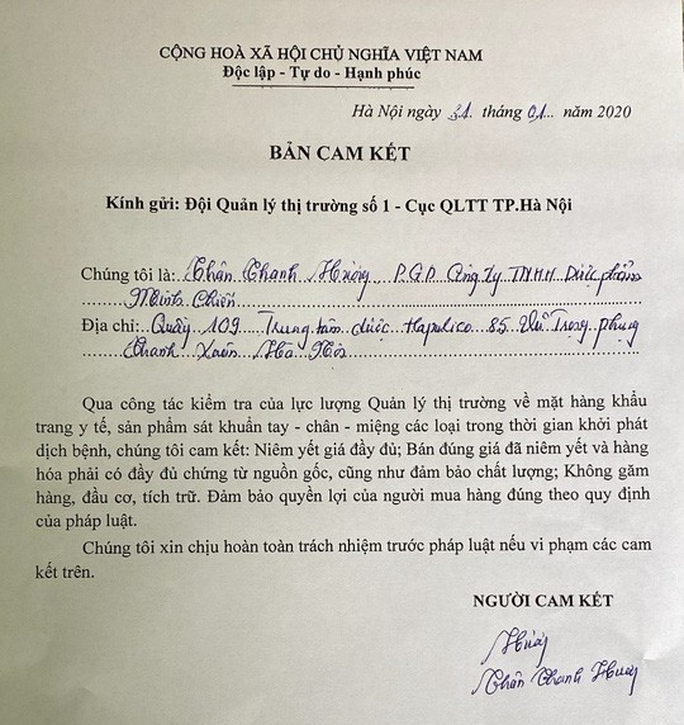 CỘNG HOÀ XÃ HỘI CHỦ NGHĨA VIỆT NAM
Độc lập - Tự do - Hạnh phúc
Hà Nội ngày 31 tháng 01 năm 2020
BẢN CAM KẾT
Kính gửi: Đội Quản lý thị trường số 1 - Cục QLTT TP.Hà Nội
Chúng tôi là: Thân Thanh Hương P.GĐ Công ty TNHH Dược phẩm
Minh Chiến
Địa chỉ: Quầy 109 Trung tâm dược Hapulico 85 Vũ Trọng Phụng
Thanh Xuân Hà Nội
Qua công tác kiểm tra của lực lượng Quản lý thị trường về mặt hàng khẩu
trang y tế, sản phẩm sát khuẩn tay - chân - miệng các loại trong thời gian khởi phát
dịch bệnh, chúng tôi cam kết: Niêm yết giá đầy đủ; Bán đúng giá đã niêm yết và hàng
hóa phải có đầy đủ chứng từ nguồn gốc, cũng như đảm bảo chất lượng; Không găm
hàng, đầu cơ, tích trữ. Đảm bảo quyền lợi của người mua hàng đúng theo quy định
của pháp luật.
Chúng tôi xin chịu hoàn toàn trách nhiệm trước pháp luật nếu vi phạm các cam
kết trên.
NGƯỜI CAM KẾT
Thân Thanh